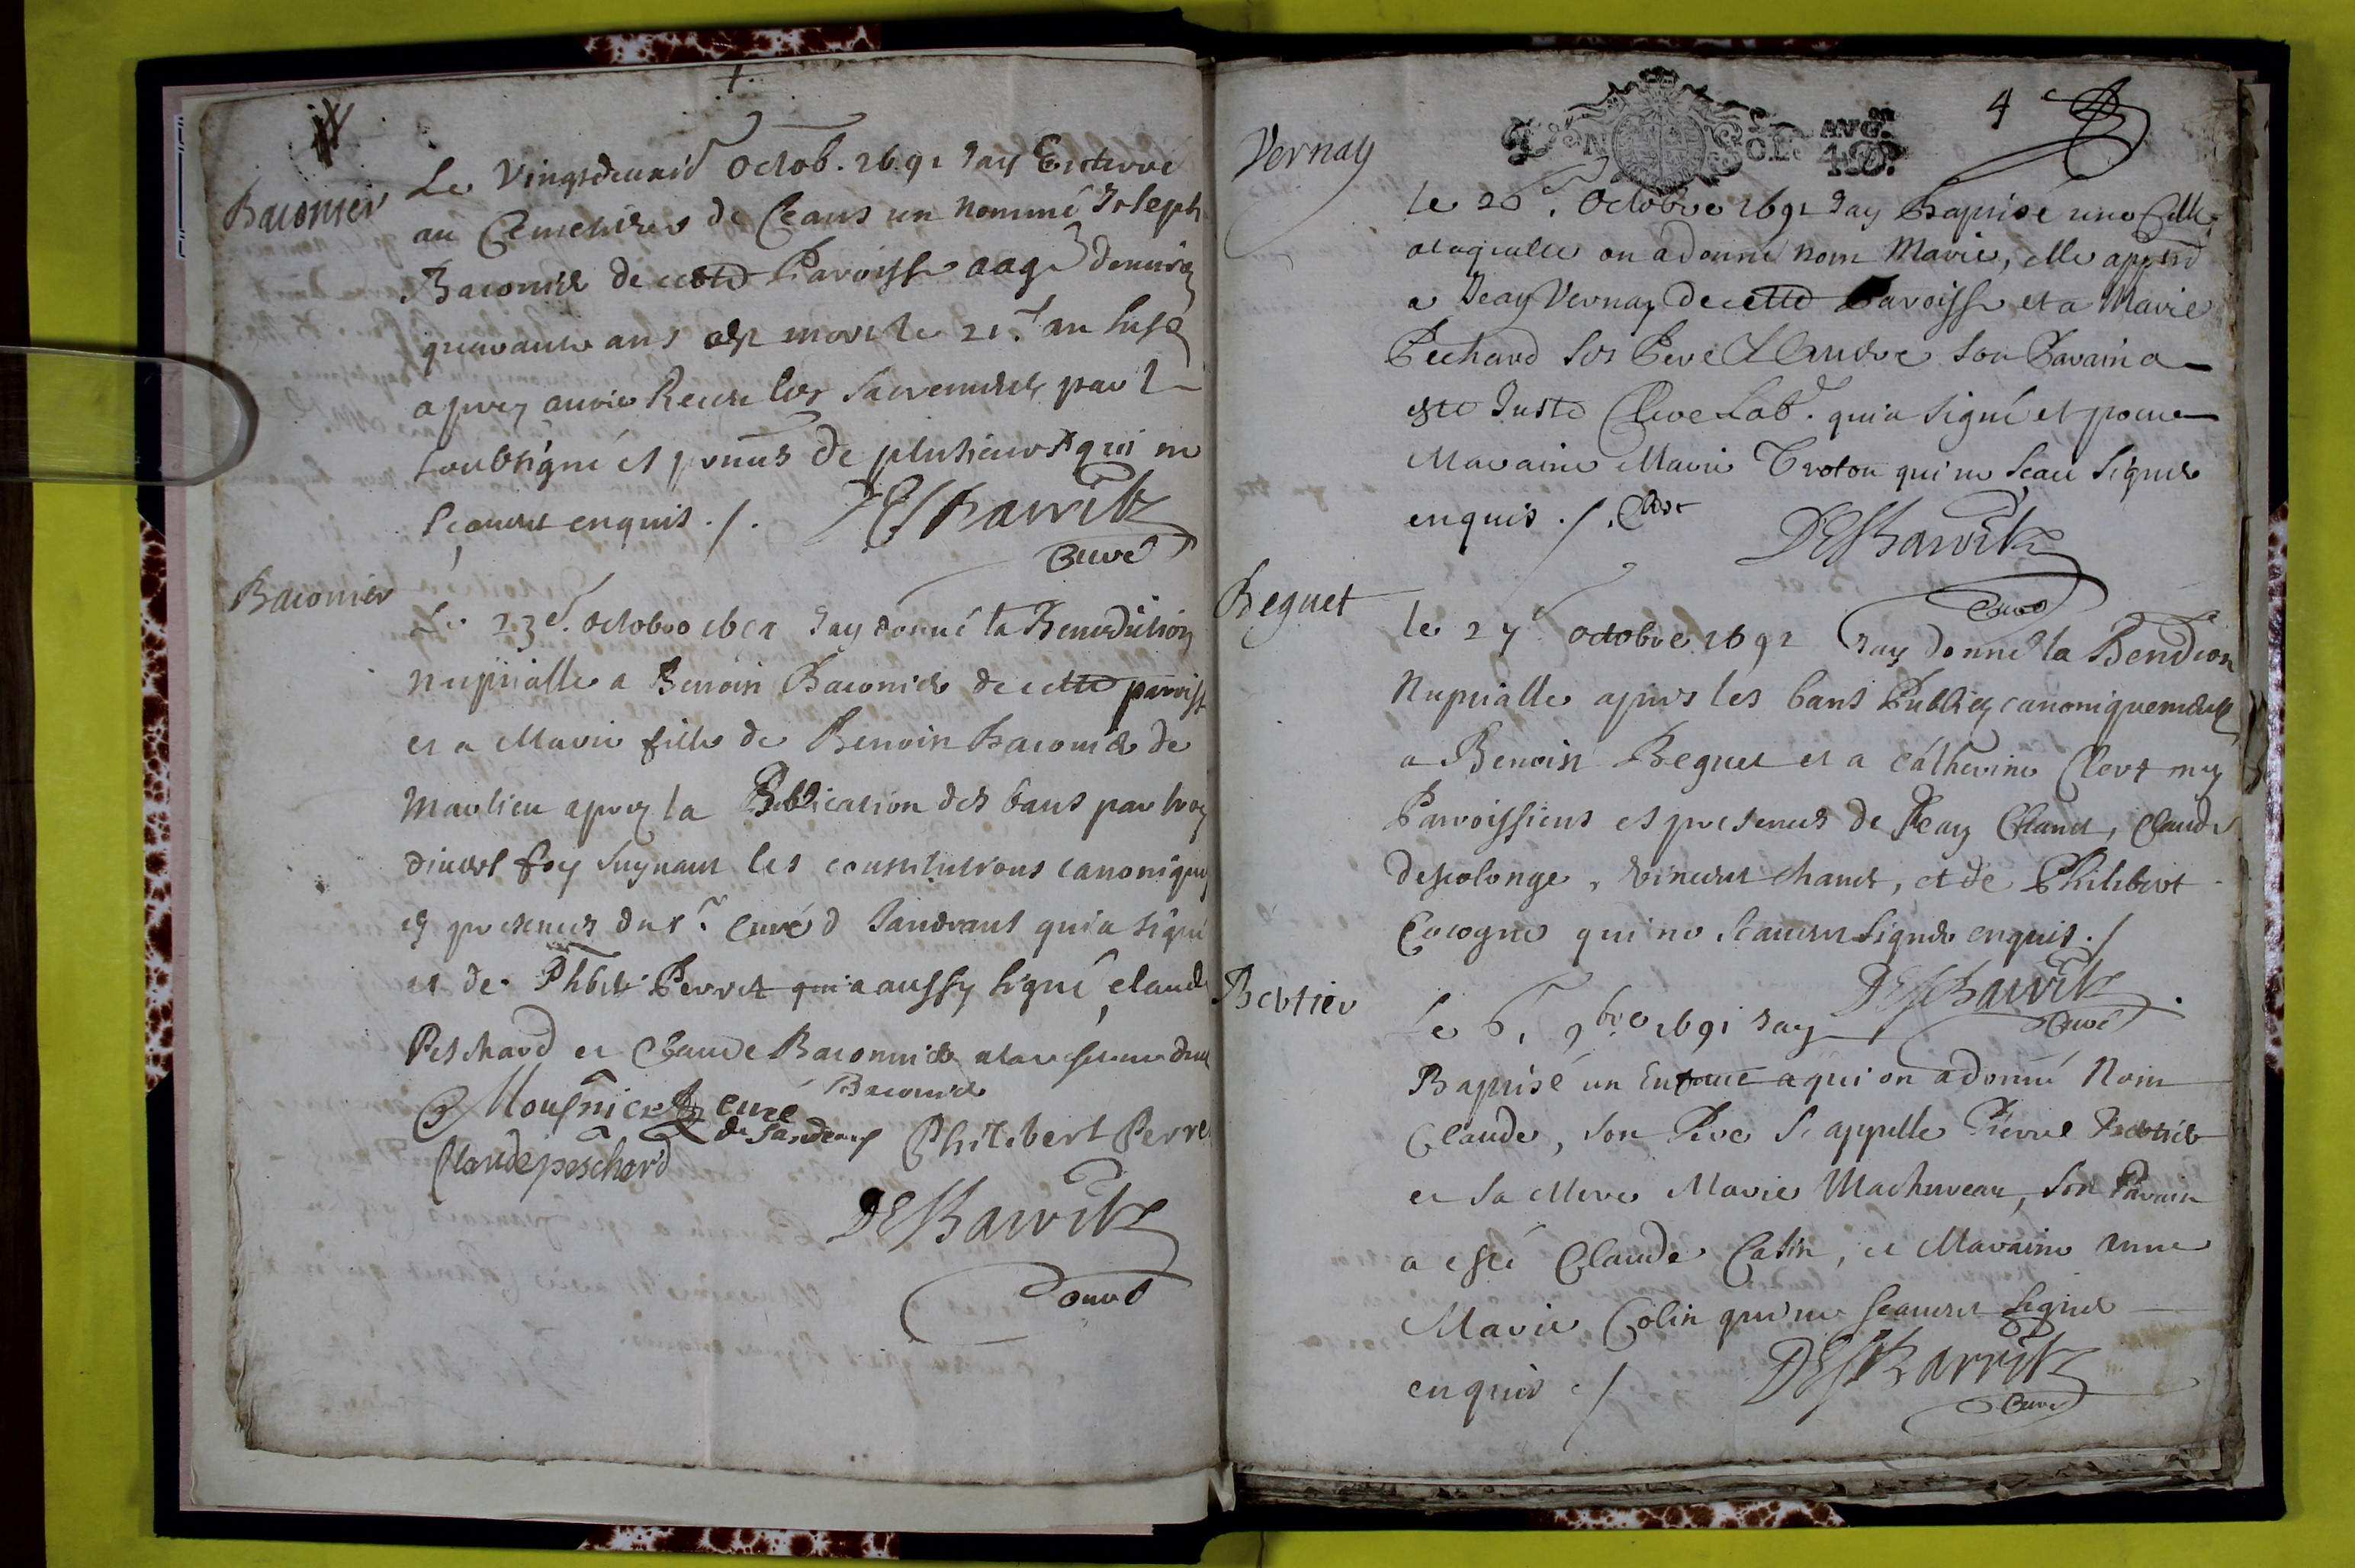 Baconier
Le Vingtdeuxie Octob. 1691 Jay Enterré
au Cemetiere de Ceans un nommé Joseph
Baconier de cette Paroisse aagé denviron
quarante ans est mort le 21.e du susd
aprez avoir Receu les Sacrements par le
soubsigné et pnts de plusieurs qui ne
sçavent enquis ./. DESBarrites
Curé
Baconier
Le 23e. octobre 1691 Jay donné la Benediction
nuptialle a Benoin Baconier de cette paroisse
et a Marie fille de Benoin Baconier de
Marlieu aprez la Publication des bans par trois
divers foy suyvant les constitutions canoniques
en presences du sr. curé d Sandrans qui a signé
et de Phbert Perret qui a aussy signé, claude
Peschard et Claude Baconnier
Baconier
Mousnier curé
de Sandrans Philibert Perret
Claude peschard
DESBarrites
Curé
4
Vernay
GEN LION SOLS
le 26e. Octobre 1691 Jay Baptisé une fille
a laquelle on a donné nom Marie, elle append
a Jean Vernay de cette Paroisse et a Marie
Pechard ses Pere & Mere son Parain a
esté Juste Clere Lab. qui a signé et pour
Maraine Marie Troton qui ne scait signer
enquis ./. Clere
DESBarrites
Curé
Beguet
le 27e octobre 1691 Jay donné la Bendion
Nuptialle apres les bans Publiez canoniquement
a Benoist Beguet et a Catherine Clert mes
Paroissiens et presences de Jean Chanet, Claude
descolonge, vincent chanet, et de Philibert
Cocogne qui ne scavent signer enquis ./
DESBarrites
Curé
Bertier
Le 6. 9bre 1691 Jay
Baptisé un Enfant a qui on a donné Nom
Claude, son Pere s'appelle Pierre Bertier
et sa Mere Marie Machureau, son Parain
a esté Claude Catin, et Maraine Anne
Marie Colin qui ne scavent signer
enquis ./ DESBarrites
Curé